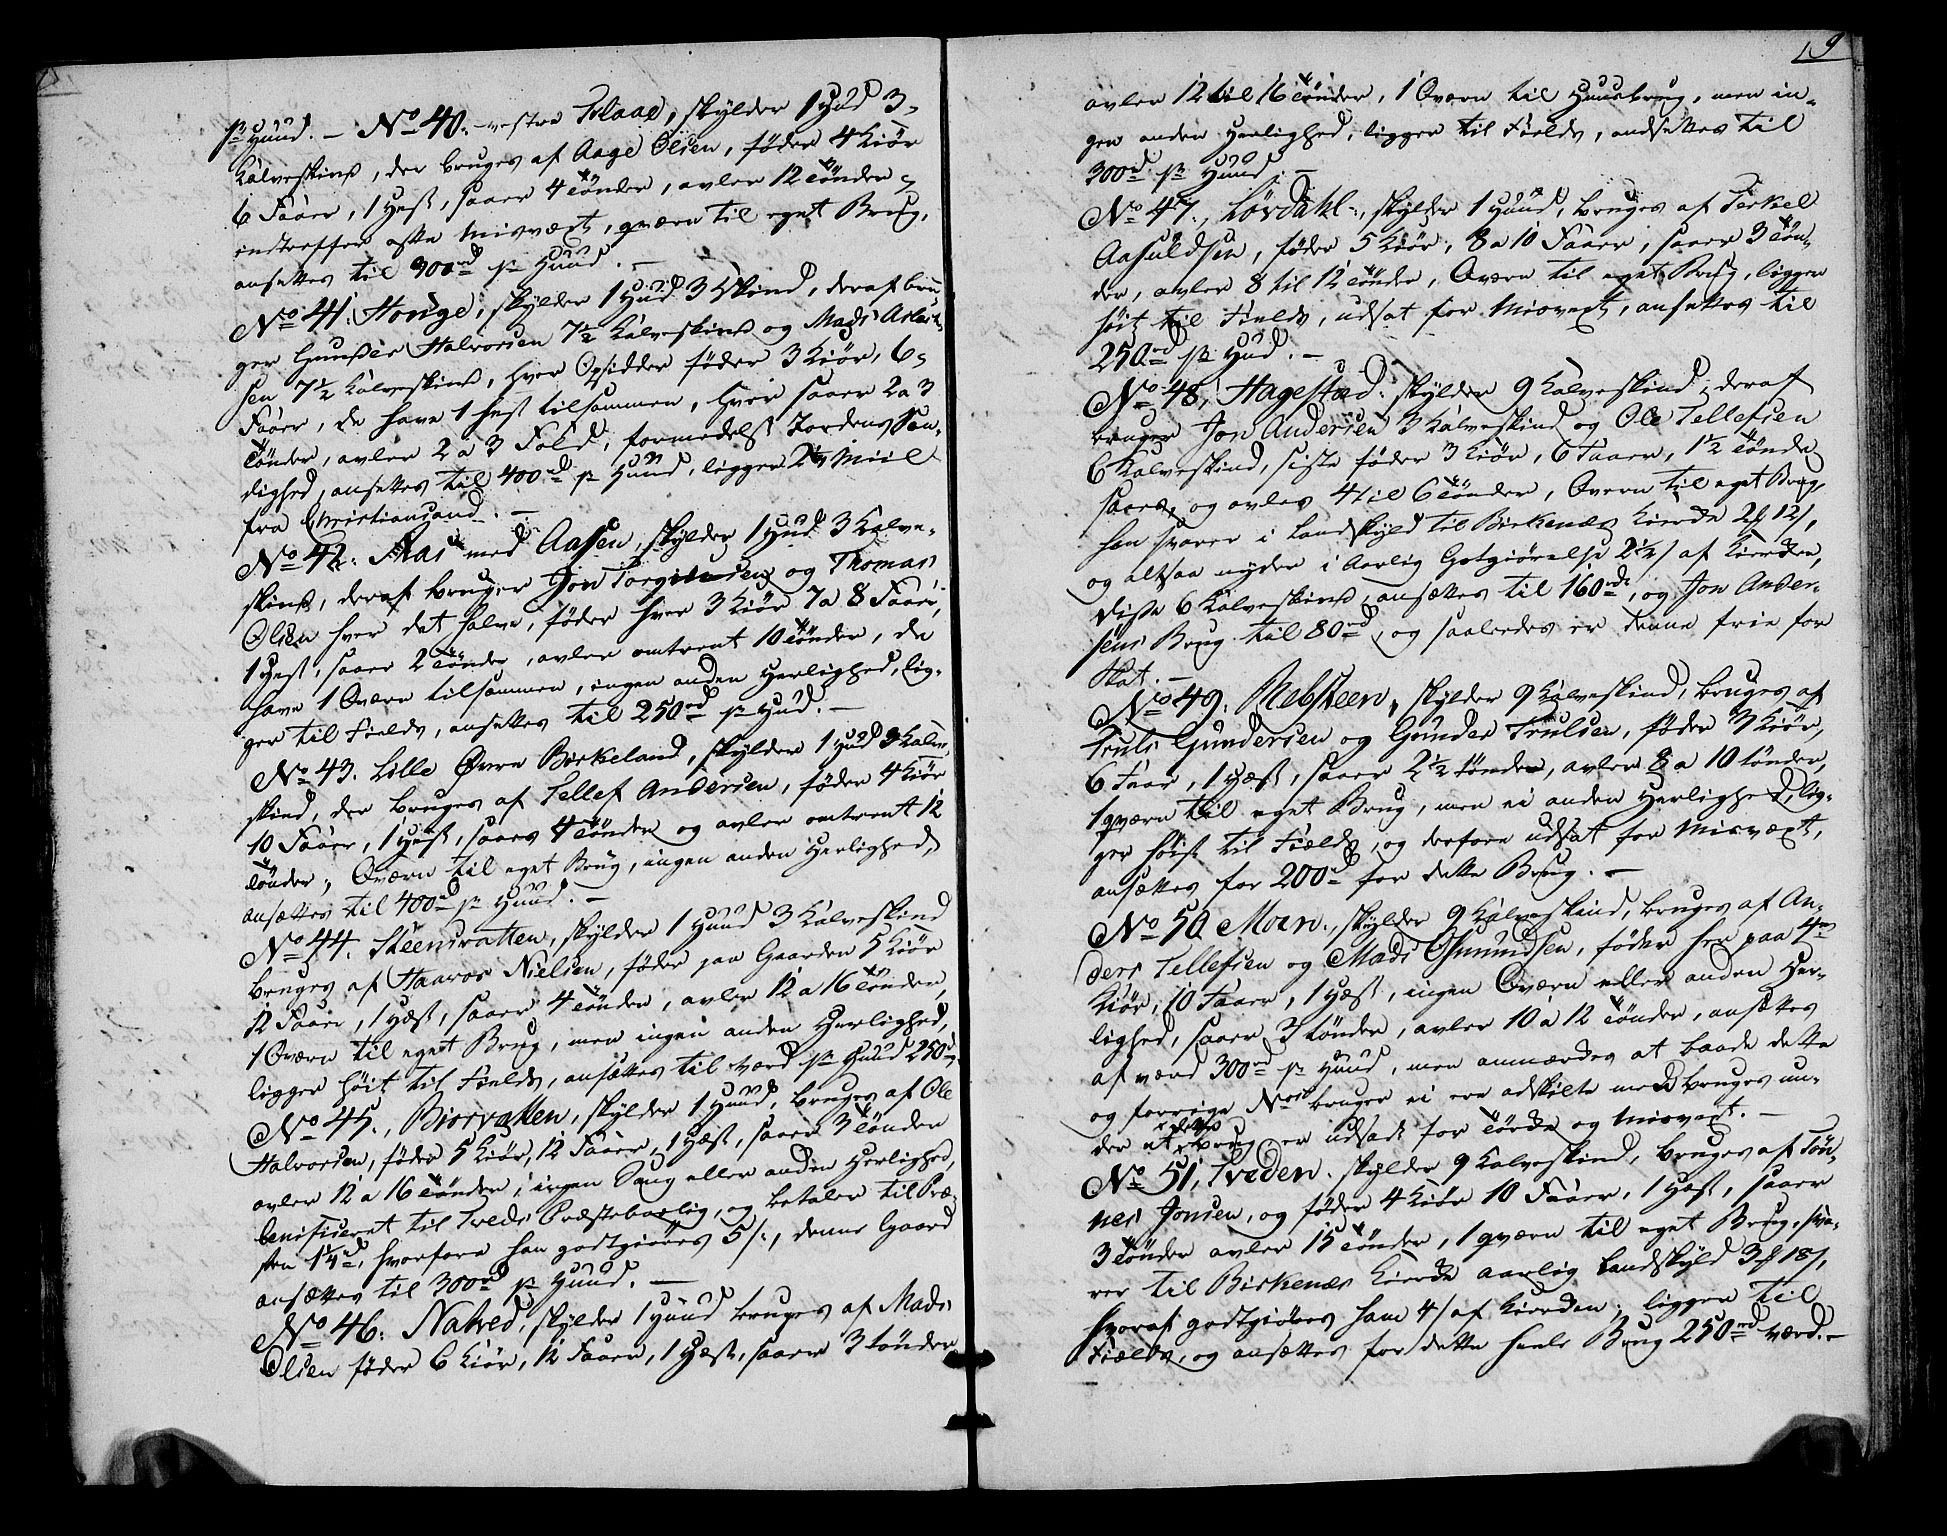 pr Huud. – No 40. vestre Flaae, skylder 1 Hud 3
Kalveskind, der bruges af Aage Olsen, føder 4 Kiør
6 Faaer, 1 Hest, saaer 4 Tønder, avler 12 Tønder,
indtreffer ofte Misvext, qværn til eget Brug,
ansettes til 300rd pr Huud. –
No 41. Honge, skylder 1 Hud 3 Skind, deraf bru-
ger Gunder Halvorsen 7½ Kalveskind og Mads Aslak-
sen 7½ Kalveskind, hver Opsidder føder 3 Kiør, 6
Faaer, de have 1 hest tilsammen, hver saaer 2 a 3
Tønder, avler 2 a 3 Fold, formedelst Jordens San-
dighed, ansettes til 400rd pr Huud, ligger 2½ Miil
fra Christiansand. –
No 42. Aas med Aasen, skylder 1 Hud 3 Kalve-
skind, deraf bruger Jon Torgiusen og Thomas
Olsen hver det halve, føder hver 3 Kiør 7 a 8 Faaer,
1 Hest, saaer 2 Tønder, avler omtrent 10 Tønder, de
have 1 Qværn tilsammen, ingen anden Herlighed, lig-
ger til Fields, ansettes til 250rd pr Hud. –
No 43. Lille Øvre Birkeland, skylder 1 Hud 3 Kalve-
skind, der bruges af Tellef Andersen, føder 4 Kiør
10 Faaer, 1 Hest, saaer 4 Tønder og avler omtrent 12
Tønder, Qværn til eget Brug, ingen anden Herlighed,
ansættes til 400rd pr Huud. –
No 44. Steensvatten, skylder 1 Huud 3 Kalveskind
bruges af Haavor Nielsen, føder paa Gaarden 5 Kiør
12 Faaer, 1 Hæst, saaer 4 Tønder, avler 12 a 16 Tønder,
1 Qværn til eget Brug, men ingen anden Herlighed,
ligger høit til Fields, ansættes til værd pr Huud 250rd
No 45., Biorvatten, skylder 1 Huud, bruges af Ole
Halvorsen, føder 5 Kiør, 12 Faaer, 1 Hæst, saaer 3 Tønder
avler 12 a 16 Tønder, ingen Saug eller anden Herlighed,
benificeret til Tveds Præstebolig, og betaler til Præ-
sten 1¼rd, hvorfore han godtgiøres 5/:, denne Gaard
ansættes til 300rd pr Huud. –
No 46. Natved, skylder 1 Huud bruges af Mads
Olsen føder 6 Kiør, 12 Faaer, 1 Hæst, saaer 3 tønder
19
avler 12 til 16 Tønder, 1 Qværn til Huusbrug, men in-
gen anden Herlighed, ligger til Fields, andsettes til
300rd pr Huud. –
No 47., Lövdahl, skylder 1 Huud, bruges af Terkel
Aasuldsen, føder 5 Kiør, 8 a 10 Faaer, saaer 3 Tøn-
der, avler 8 til 12 Tønder, Qværn til eget Brug, ligger
høit til Fields, udsat for Misvext, ansettes til
250rd pr Hud. –
No 48, Hagestad skylder 9 Kalveskind, deraf
bruger Jon Andersen 3 Kalveskind og Ole Tellefsen
6 Kalveskind, siste føder 3 Kiør, 6 Faaer, 1½ Tønde
saaes, og avles 4 til 6 Tønder, Qværn til eget Brug,
han svarer i Landskyld til Birkenæs Kierke 2 12/,
og altsaa nyder i Aarlig Gotgiørelse 2½/ af Kierken,
disse 6 Kalveskind, ansættes til 160rd, og Jon Ander-
sens Brug til 80rd, og saaledes er denne frie for
Skat. –
No 49. Melsteen, skylder 9 Kalveskind, bruges af
Truls Gundersen og Gunder Trulsen, føder 3 Kiør,
6 Faar, 1 Hæst, saaer 2½ tønder, avler 8 a 10 tønder,
1 qværn til eget Brug, men ei anden Herlighed, lig-
ger høist til Fields, og derfore udsat for Misvæxt,
ansættes for 200rd for dette Brug. –
No 50 Moen, skylder 9 Kalveskind, bruges af An-
ders Tellefsen og Mads Osmundsen, føder her paa 4re
Kiør, 10 Faaer, 1 Hæst, ingen Qværn eller anden Her-
lighed, saaer 3 tønder, avler 10 a 12 Tønder, ansættes
af værd 300rd pr Huud, men anmærkes at baade dette
og forrige Nos bruger ei ere adskilte men bruges un-
der et i dette er udsadt for Tørke og Misvext. –
No 51, Tveden. skylder 9 Kalveskind, bruges af Tøn-
nes Jonsen, og føder 4 Kiør 10 Faaer, 1 Hæst, saaer
3 Tønder avler 15 Tønder, 1 qværn til eget Brug, sva-
rer til Birkenæs Kierke aarlig Landskyld 3 18/,
hvoraf godtgiøres ham 4/ af Kierken; ligger til
Fields, og ansættes for dette heele Brug 250rd værd. –